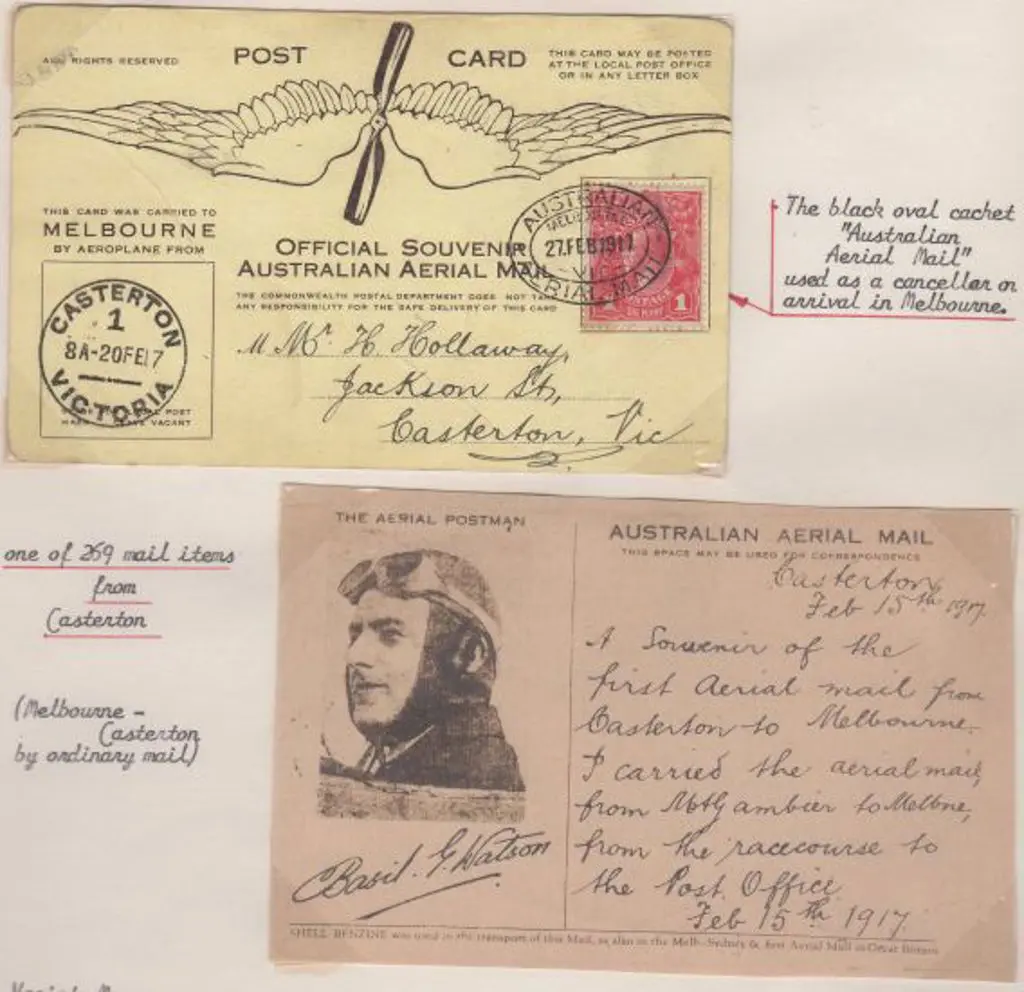 ALL RIGHTS RESERVED
POST CARD
THIS CARD MAY BE POSTED
AT THE LOCAL POST OFFICE
OR IN ANY LETTER BOX
THIS CARD WAS CARRIED TO
MELBOURNE
BY AEROPLANE FROM
CASTERTON
1
8A-20FE17
VICTORIA
POST
LEAVE VACANT
OFFICIAL SOUVENIR
AUSTRALIAN AERIAL MAIL
THE COMMONWEALTH POSTAL DEPARTMENT DOES NOT TAKE
ANY RESPONSIBILITY FOR THE SAFE DELIVERY OF THIS CARD
AUSTRALIAN
MELBOURNE
27.FEB1917
VIC
AERIAL MAIL
POSTAGE
1
Mr. H. Hollaway,
Jackson St,
Casterton, Vic
The black oval cachet
"Australian
Aerial Mail"
used as a canceller on
arrival in Melbourne.
one of 269 mail items
from
Casterton
(Melbourne -
Casterton
by ordinary mail)
THE AERIAL POSTMAN
Basil. G. Watson
AUSTRALIAN AERIAL MAIL
THIS SPACE MAY BE USED FOR CORRESPONDENCE
Casterton,
Feb 15th 1917.
A Souvenir of the
first Aerial mail from
Casterton to Melbourne.
I carried the aerial mail,
from Mt Gambier to Melbne,
from the racecourse to
the Post Office
Feb 15th 1917.
SHELL BENZINE was used in the transport of this Mail, as also in the Melb.-Sydney & first Aerial Mail in Great Britain